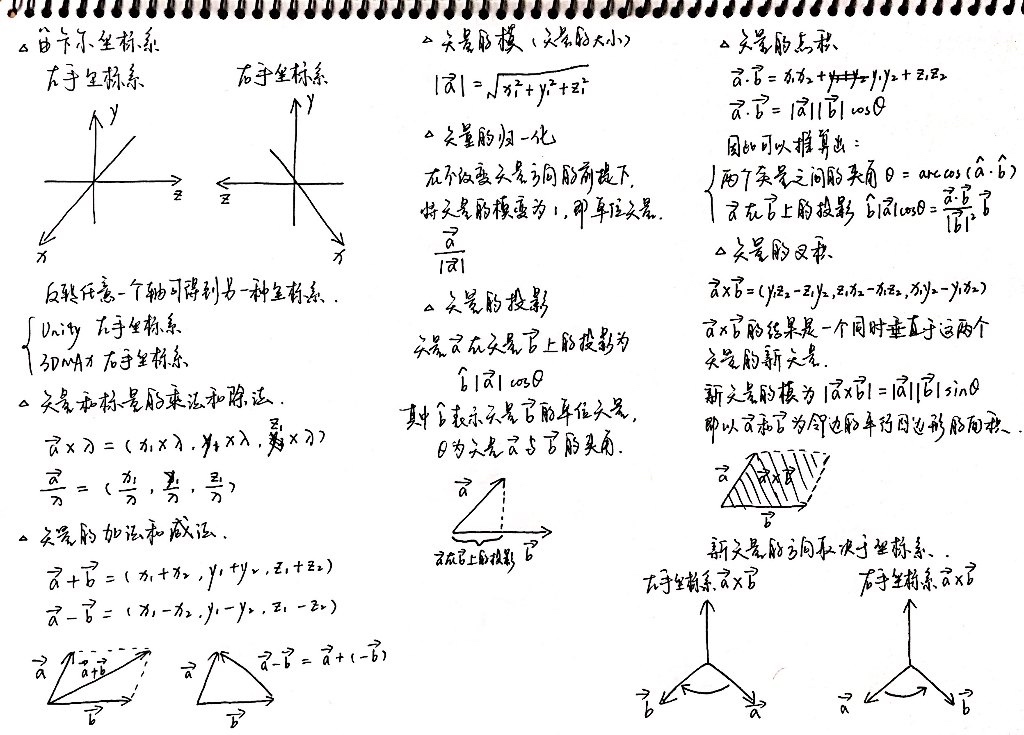 △ 笛卡尔坐标系
左手坐标系
右手坐标系
y
z
x
y
z
x
反转任意一个轴可得到另一种坐标系.
Unity 左手坐标系
3DMAX 右手坐标系
△ 矢量和标量的乘法和除法.
a⃗×λ = (x₁×λ, y₁×λ, z₁×λ)
a⃗/λ = (x₁/λ, y₁/λ, z₁/λ)
△ 矢量的加法和减法.
a⃗+b⃗ = (x₁+x₂, y₁+y₂, z₁+z₂)
a⃗−b⃗ = (x₁−x₂, y₁−y₂, z₁−z₂)
a⃗
a⃗+b⃗
b⃗
a⃗
a⃗−b⃗ = a⃗+(−b⃗)
b⃗
△ 矢量的模 (矢量的大小)
|a⃗| = √(x₁²+y₁²+z₁²)
△ 矢量的归一化
在不改变矢量方向的前提下,
将矢量的模变为1, 即单位矢量.
a⃗/|a⃗|
△ 矢量的投影
矢量a⃗在矢量b⃗上的投影为
b̂|a⃗|cosθ
其中b̂表示矢量b⃗的单位矢量,
θ为矢量a⃗与b⃗的夹角.
a⃗
a⃗在b⃗上的投影
b⃗
△ 矢量的点积
a⃗·b⃗ = x₁x₂+y₁y₂+z₁z₂
a⃗·b⃗ = |a⃗||b⃗|cosθ
因此可以推算出:
两个矢量之间的夹角 θ = arccos(â·b̂)
a⃗在b⃗上的投影 b̂|a⃗|cosθ = (a⃗·b⃗)/|b⃗|² b⃗
△ 矢量的叉积
a⃗×b⃗ = (y₁z₂−z₁y₂, z₁x₂−x₁z₂, x₁y₂−y₁x₂)
a⃗×b⃗的结果是一个同时垂直于这两个
矢量的新矢量.
新矢量的模为|a⃗×b⃗| = |a⃗||b⃗|sinθ
即以a⃗和b⃗为邻边的平行四边形的面积.
a⃗
a⃗×b⃗
b⃗
新矢量的方向取决于坐标系.
左手坐标系a⃗×b⃗
b⃗
a⃗
右手坐标系a⃗×b⃗
a⃗
b⃗